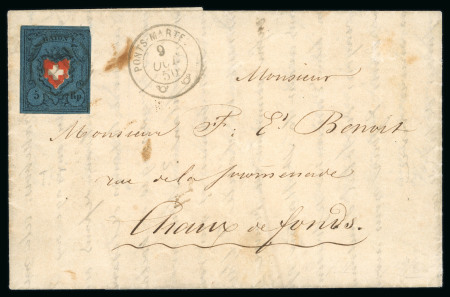 RAYON I
5 Rp.
PONTS-MARTEL
9
OCT
50
Monsieur
Monsieur F: Es Benoit
rue de la promenade
Chaux de fonds.